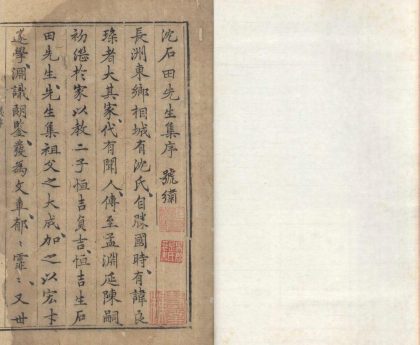 沈石田先生集序 號繡
長洲東鄉相城有沈氏自勝國時有諱良
琛者大其家代有聞人傳至孟淵延陳嗣
初繼於家以教二子恒吉貞吉恒吉生石
田先生先生集祖父之大成加之以宏才
邃學淵識朗鑒發為文章郁〻霏〻又世